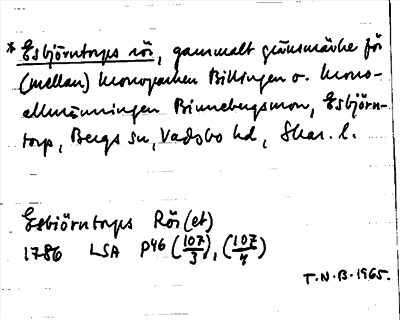 * Esbjörntorps rös, gammalt gränsmärke för
(mellan) kronoparken Billingen o. krono-
allmänningen Binnebergsmon, Esbjörn-
torp, Bergs sn, Vadsbo hd, Skar. l.
Esbiörntorps Rös(et)
1786 LSA P46 (107/3), (107/4)
T.N.B. 1965.